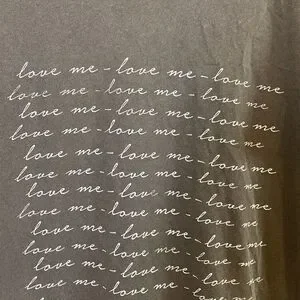 love me - love me - love me
love me - love me - love me
love me - love me - love me
love me - love me - love me
love me - love me - love me
love me - love me - love me
love me - love me - love me
love me - love me - love me
love me - love me - love me
love me - love me - love me
love me - love me - love me
love me - love me - love